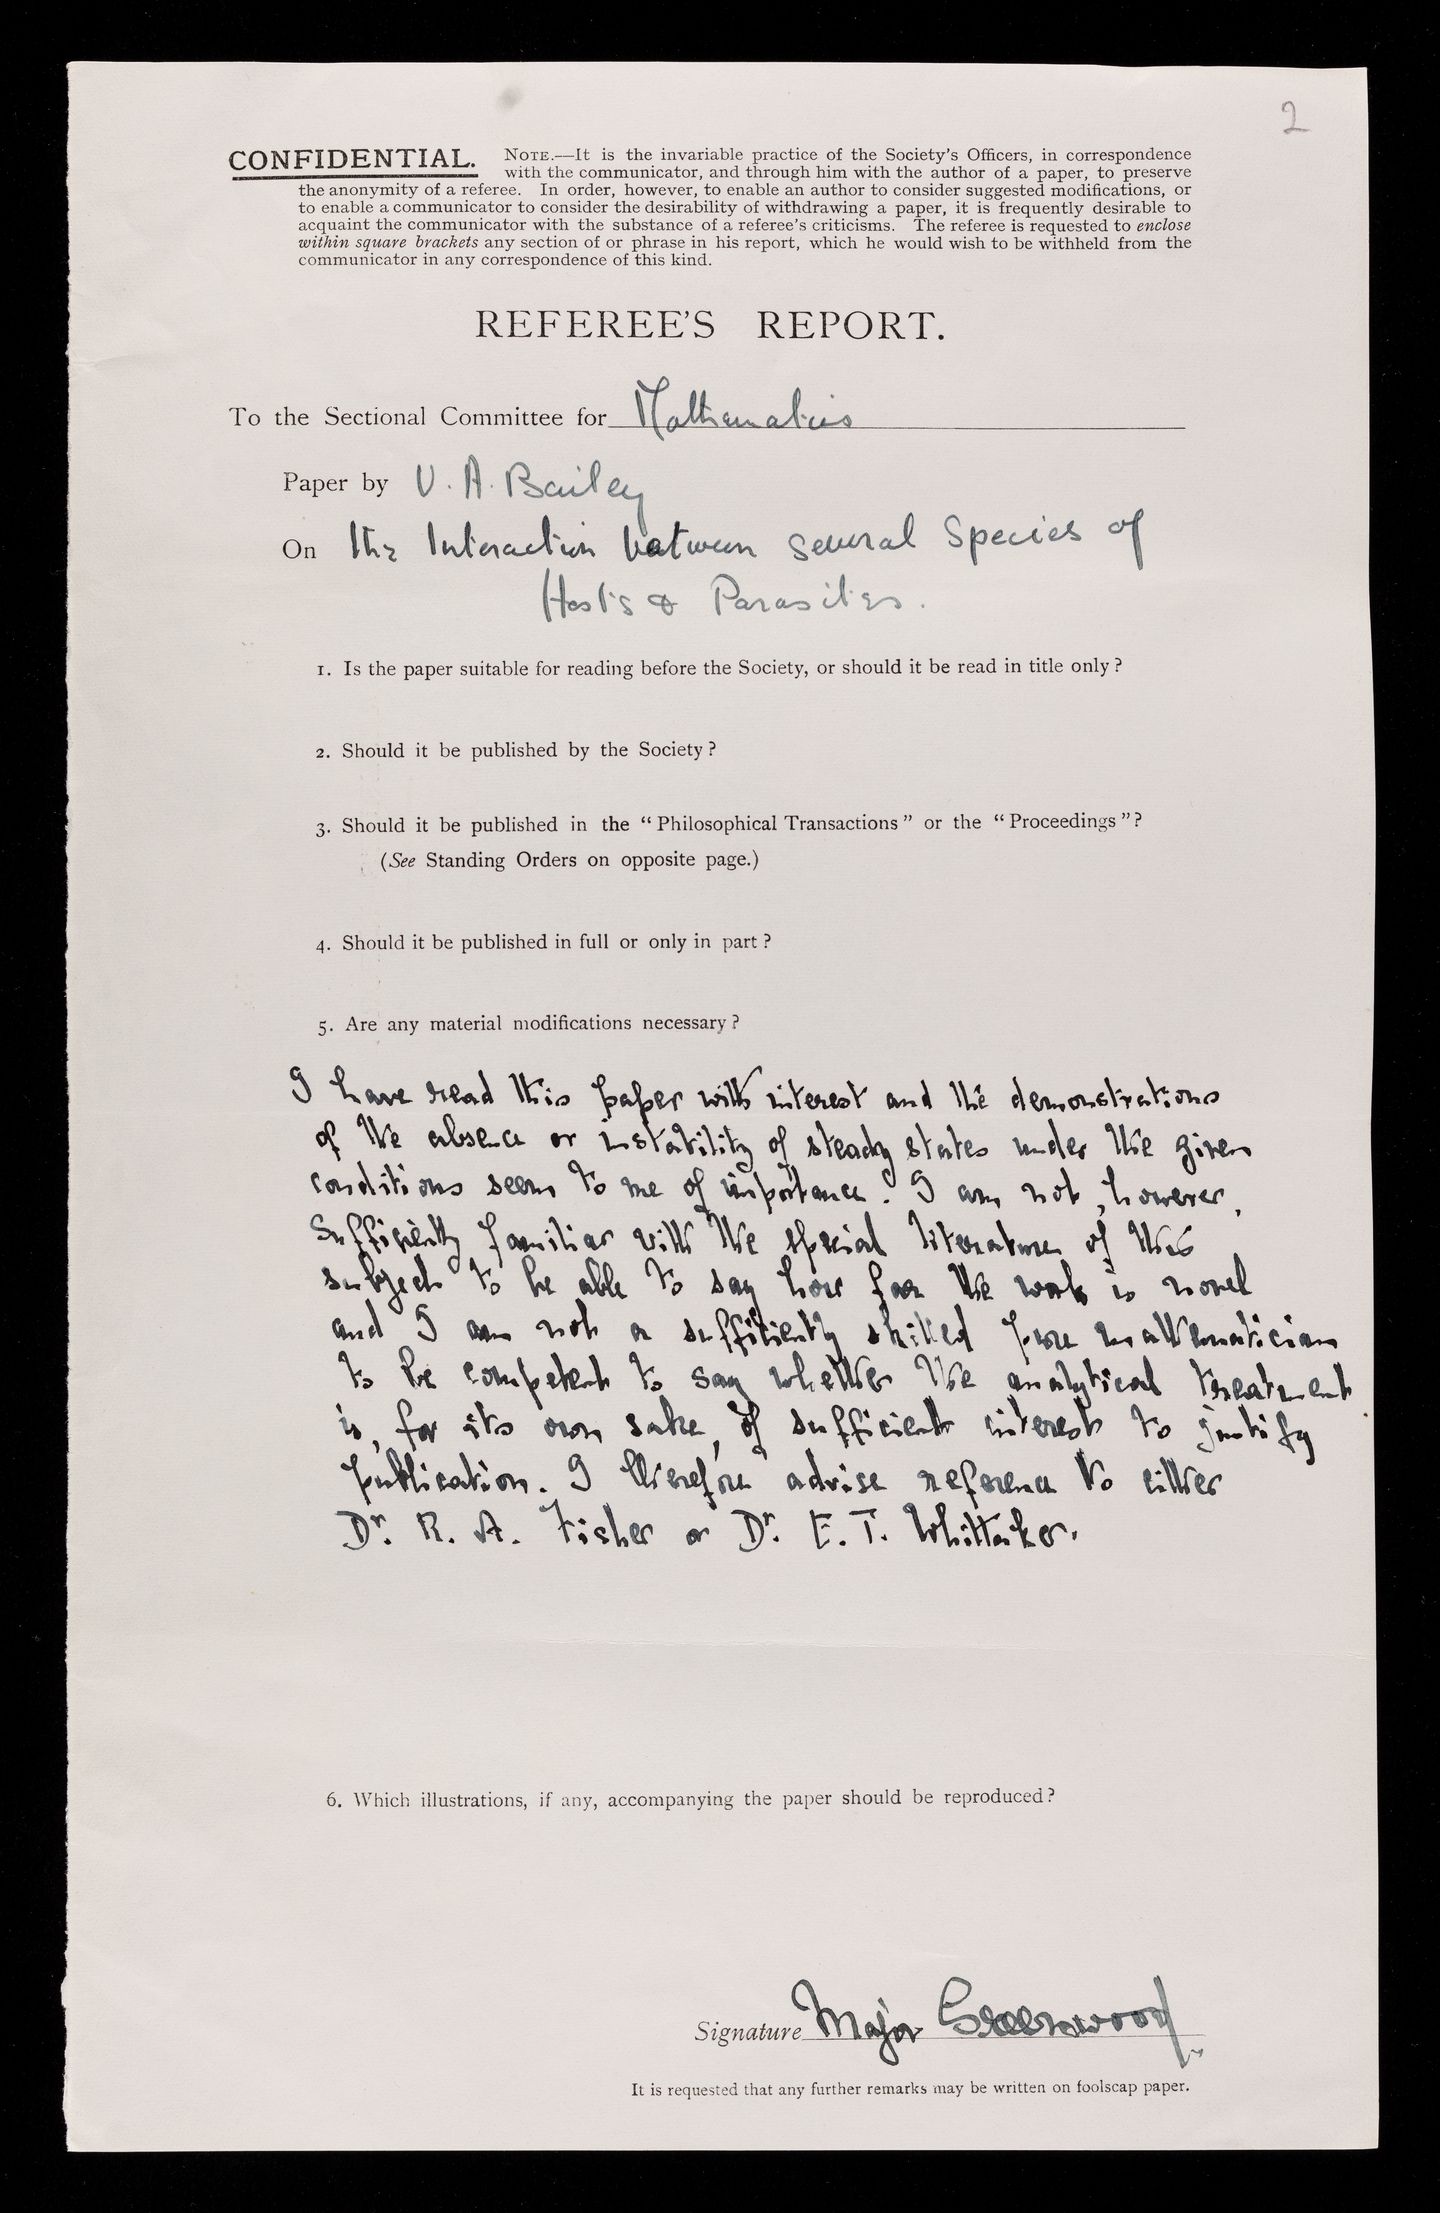 2
CONFIDENTIAL. NOTE.—It is the invariable practice of the Society's Officers, in correspondence
with the communicator, and through him with the author of a paper, to preserve
the anonymity of a referee. In order, however, to enable an author to consider suggested modifications, or
to enable a communicator to consider the desirability of withdrawing a paper, it is frequently desirable to
acquaint the communicator with the substance of a referee's criticisms. The referee is requested to enclose
within square brackets any section of or phrase in his report, which he would wish to be withheld from the
communicator in any correspondence of this kind.
REFEREE'S REPORT.
To the Sectional Committee for Mathematics
Paper by V. A. Bailey
On the Interaction between several Species of
Hosts & Parasites.
1. Is the paper suitable for reading before the Society, or should it be read in title only?
2. Should it be published by the Society?
3. Should it be published in the "Philosophical Transactions" or the "Proceedings"?
(See Standing Orders on opposite page.)
4. Should it be published in full or only in part?
5. Are any material modifications necessary?
I have read this paper with interest and the demonstrations
of the absence or instability of steady states under the given
conditions seem to me of importance. I am not, however,
sufficiently familiar with the special literature of this
subject to be able to say how far the work is novel
and I am not a sufficiently skilled pure mathematician
to be competent to say whether the analytical treatment
is, for its own sake, of sufficient interest to justify
publication. I therefore advise reference to either
Dr. R. A. Fisher or Dr. E. T. Whittaker.
6. Which illustrations, if any, accompanying the paper should be reproduced?
Signature Major Greenwood
It is requested that any further remarks may be written on foolscap paper.